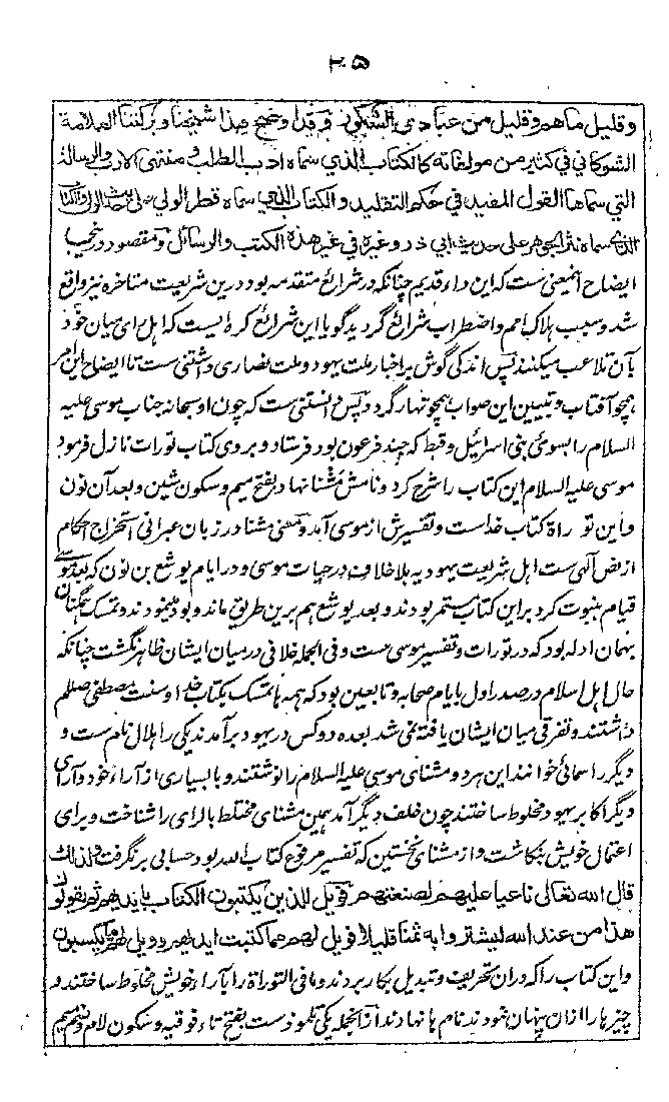 ۲۵
وقليل ما هم وقليل من عبادی الشكور وقد اوضح هذا شيخنا وبركتنا العلامة
الشوكاني في كثير من مولفاته كالكتاب الذي سماه ادب الطلب ومنتهى الارب والرسالة
التي سماها القول المفيد في حكم التقليد والكتاب الذي سماه قطر الولي على حديث الولي والكتاب
الذي سماه نثر الجوهر على حديث ابي ذر وغيره في غير هذه الكتب والرسائل ومقصود درينجا
ایضاح اینمعنی ست که این داء قدیم چنانکه در شرائع متقدمه بود درین شریعت متاخره نیز واقع
شد وسبب هلاک امم واضطراب شرائع گردید گویا این شرائع کره ایست که اهل رای میان خود
بآن تلاعب میکنند پس اندکی گوش بر اخبار ملت یهود وملت نصاری داشتنی ست تا ایضاح این امر
همچو آفتاب وتبیین این صواب همچو نهار گردد پس دانستنی ست که چون او سبحانه جناب موسی علیه
السلام را بسوی بنی اسرائیل وقبط که جند فرعون بود فرستاد وبروی کتاب تورات نازل فرمود
موسی علیه السلام این کتاب را شرح کرد ونامش مشنا نهاد بفتح میم وسکون شین وبعد آن نون
واین توراة کتاب خداست وتفسیرش از موسی آمد ومعنی مشنا در زبان عبرانی استخراج احکام
از نص الهی ست اهل شریعت یهودیه بلا خلاف در حیات موسی ودر ایام یوشع بن نون که بعد موسی
قیام بنبوت کرد بر این کتاب مستمر بودند وبعد یوشع هم برین طریق ماند وبود میبودند وتمسک همگنان
بهمان ادله بود که در تورات وتفسیر موسی ست وفی الجمله خلافی در میان ایشان ظاهر نگشت چنانکه
حال اهل اسلام در صدر اول بایام صحابه وتابعین بود که همه ها تمسک بکتاب خدا وسنت مصطفی صللم
داشتند وتفرقی میان ایشان یافته نمی شد بعده دو کس در یهود برآمدند یکی را هلال نام ست و
دیگر را سمائی خوانند این هر دو مشنای موسی علیه السلام را نوشتند وبا بسیاری از آراء خود وآرای
دیگر اکابر یهود مخلوط ساختند چون خلف دیگر آمد همین مشنای مختلط بالرای را شناخت وبرای
اعتمال خویش بنکاشت واز مشنای نخستین که تفسیر مرفوع کتاب الله بود حسابی بر نگرفت ولذلك
قال الله تعالى ناعيا عليهم لصنعتهم فويل للذين يكتبون الكتاب بايديهم ثم يقولون
هذا من عند الله ليشتروا به ثمنا قليلا فويل لهم مما كتبت ايديهم وويل لهم مما يكسبون
واین کتاب را که دران تحریف وتبدیل بکار بردند وما فی التوراة را بآراء خویش مخلوط ساختند و
چیزها را ازان پنهان نمودند نام ها نهادند ازانجمله یکی تلموذ ست بفتح تاء فوقیه وسکون لام وضم میم